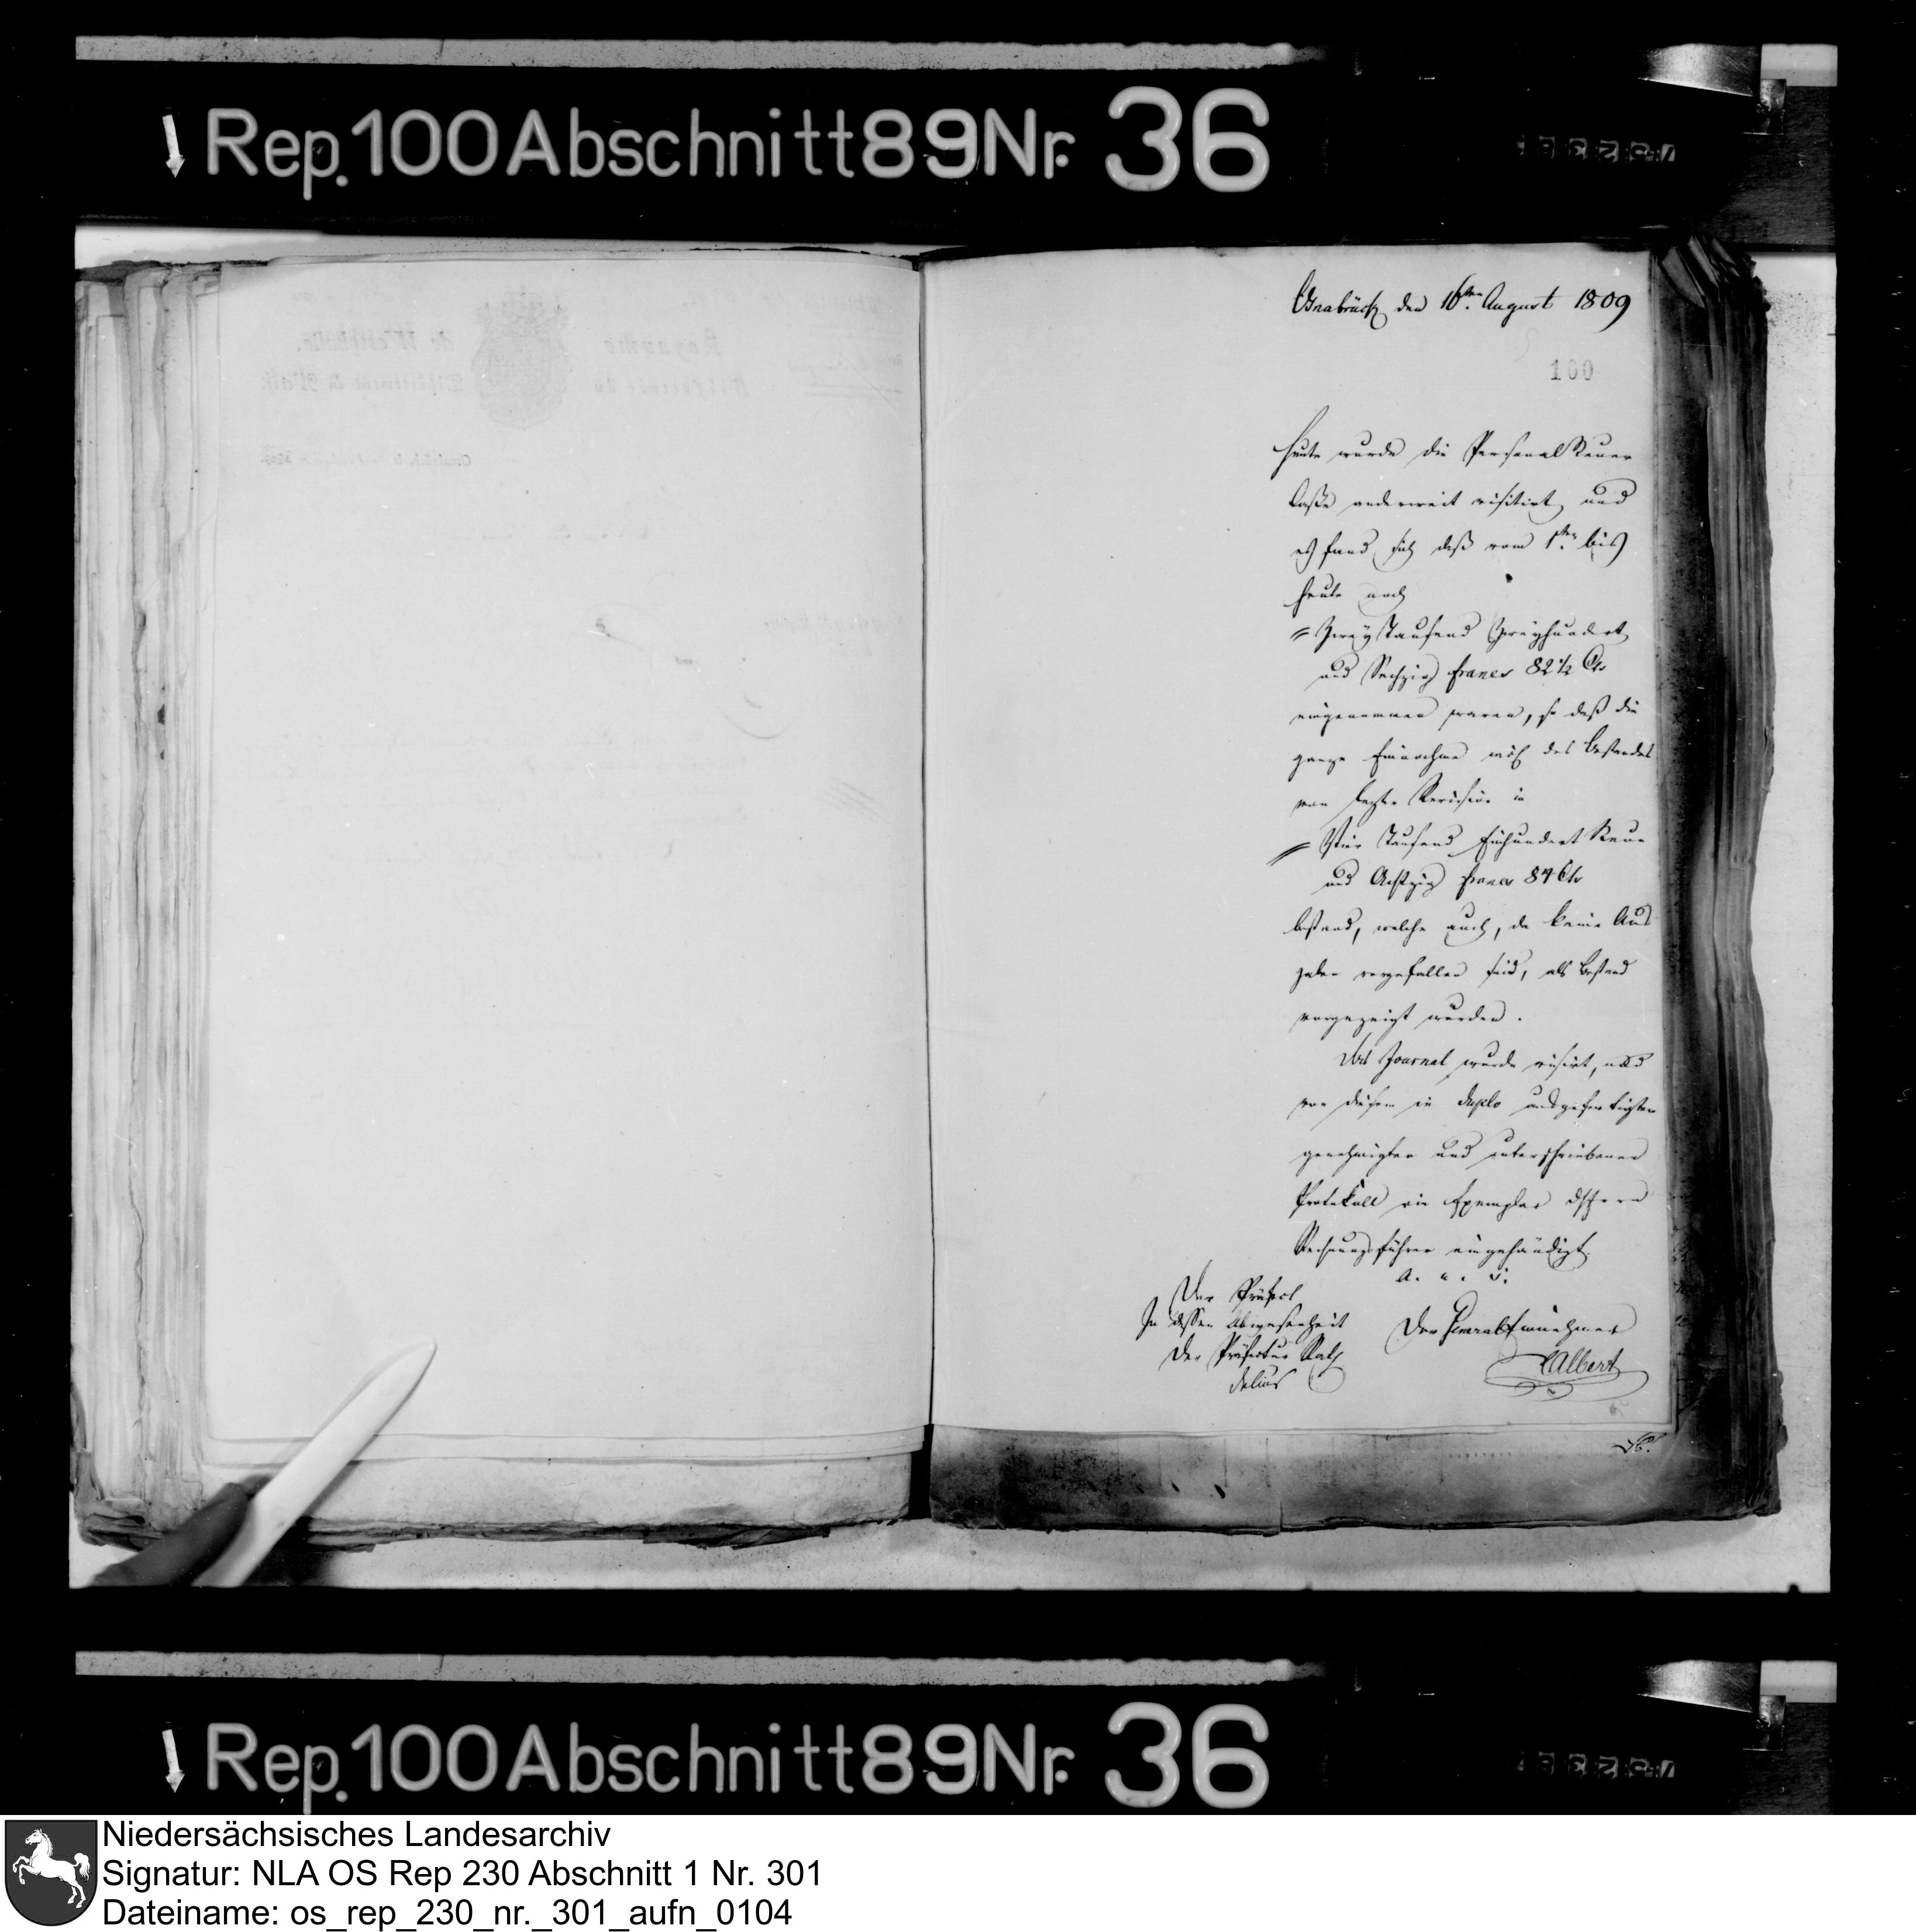 Rep. 100 Abschnitt 89 Nr. 36
Osnabrück den 16ten August 1809
100
Heute wurde die Personal Steuer
Casse anderweit visitirt, und
es fand sich daß vom 1ten bis
heute noch
= Zwey Tausend Zweyhundert
und Sechzig francs 82 1/2 Cts
eingenommen waren, so daß die
ganze Einnahme nebst des Bestandes
von letzter Revision in
= Vier Tausend Einhundert Neun
und Achtzig francs 84 Cts
bestand, welche auch, da keine Aus
gaben vorgefallen sind, als Bestand
vorgezeigt wurden.
Das Journal wurde visirt, und
von diesem in duplo ausgefertigten
genehmigten und unterschriebenen
Protokoll ein Exemplar
Rechnungsführer eingehändigt.
a. u. s.
Der Präfect
In dessen Abwesenheit
Der Präfectur Rath
Delius
Der General Einnehmer
Albert
Rep. 100 Abschnitt 89 Nr. 36
Niedersächsisches Landesarchiv
Signatur: NLA OS Rep 230 Abschnitt 1 Nr. 301
Dateiname: os_rep_230_nr._301_aufn_0104